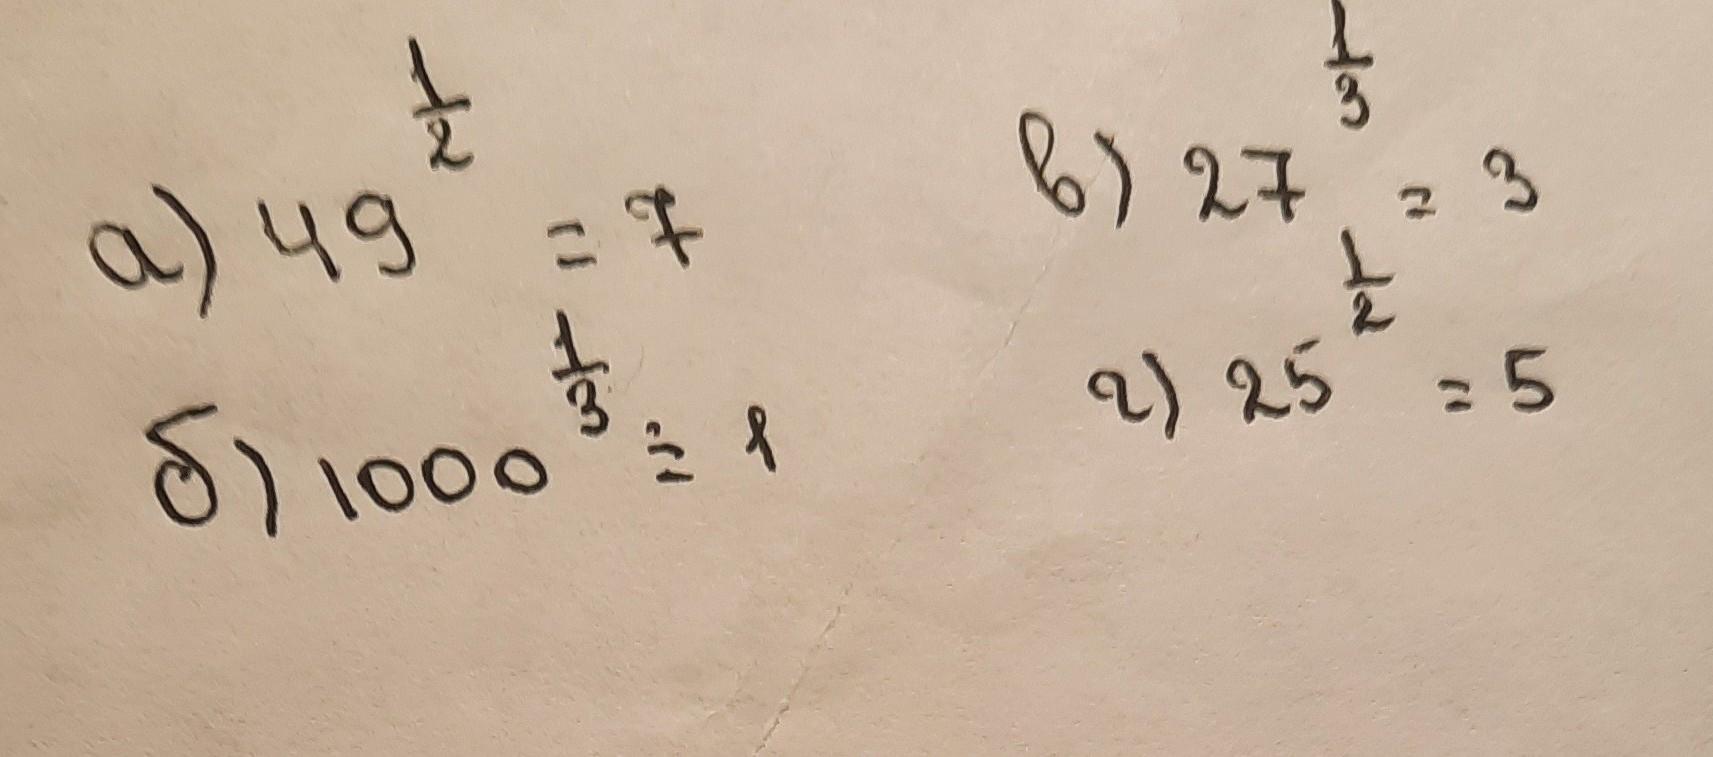 а) 49^(1/2) = 7
б) 1000^(1/3) = 1
в) 27^(1/3) = 3
г) 25^(1/2) = 5